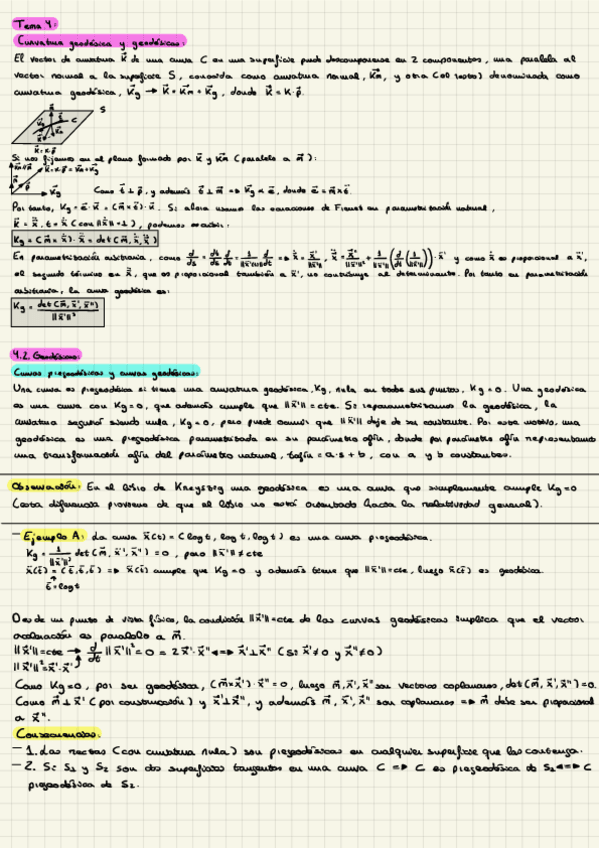 Tema 4:
Curvatura geodésica y geodésicas:
El vector de curvatura K⃗ de una curva C en una superficie puede descomponerse en 2 componentes, una paralela al
vector normal a la superficie S, conocida como curvatura normal, K⃗m, y otra (el resto) denominada como
curvatura geodésica, K⃗g → K⃗ = K⃗m + K⃗g, donde K⃗ = K·p⃗.
S
C
K⃗ = K·p⃗
Si nos fijamos en el plano formado por K⃗ y K⃗m (paralelo a m⃗):
K⃗ = K·p⃗ = K⃗m + K⃗g
K⃗g
Como t⃗ ⊥ p⃗, y además
Por tanto, Kg = e⃗·K⃗ = (m⃗×t⃗)·K⃗. Si ahora usamos las ecuaciones de Frenet en parametrización natural,
podemos escribir:
Kg = (m⃗×ẋ)·ẍ = det(m⃗, ẋ, ẍ)
En parametrización arbitraria, como
y como ẋ es proporcional a x⃗',
el segundo término en ẍ, que es proporcional también a x⃗', no contribuye al determinante. Por tanto en parametrización
arbitraria, la curva geodésica es:
Kg = det(m⃗, x⃗', x⃗'') / ||x⃗'||³
4.2. Geodésicas:
Curvas pregeodésicas y curvas geodésicas:
Una curva es pregeodésica si tiene una curvatura geodésica, Kg, nula en todos sus puntos, Kg = 0. Una geodésica
es una curva con Kg = 0, que además cumple que ||x⃗'|| = cte. Si reparametrizamos la geodésica, la
curvatura seguirá siendo nula, Kg = 0, pero puede ocurrir que ||x⃗'|| deje de ser constante. Por este motivo, una
geodésica es una pregeodésica parametrizada en su parámetro afín, donde por parámetro afín representamos
una transformación afín del parámetro natural, tafín = a·s + b, con a y b constantes.
Observación: En el libro de Kreyszig una geodésica es una curva que simplemente cumple Kg = 0
(esta diferencia proviene de que el libro no está orientado hacia la relatividad general).
– Ejemplo A: La curva x⃗(t) = (log t, log t, log t) es una curva pregeodésica.
Kg = 1/||x⃗'||³ det(m⃗, x⃗', x⃗'') = 0, pero ||x⃗'|| ≠ cte
x⃗(t̃) = (t̃, t̃, t̃) => x⃗(t̃) cumple que Kg = 0 y además tiene que ||x⃗'|| = cte, luego x⃗(t̃) es geodésica.
t̃ = log t
Desde un punto de vista físico, la condición ||x⃗'|| = cte de las curvas geodésicas implica que el vector
aceleración es paralelo a m⃗.
||x⃗'|| = cte → d/dt ||x⃗'||² = 0 = 2x⃗'·x⃗'' <=> x⃗' ⊥ x⃗'' (Si x⃗' ≠ 0 y x⃗'' ≠ 0)
||x⃗'||² = x⃗'·x⃗'
Como Kg = 0, por ser geodésica, (m⃗×x⃗')·x⃗'' = 0, luego m⃗, x⃗', x⃗'' son vectores coplanarios, det(m⃗, x⃗', x⃗'') = 0.
Como m⃗ ⊥ x⃗' (por construcción) y x⃗' ⊥ x⃗'', y además m⃗, x⃗', x⃗'' son coplanarios => m⃗ debe ser proporcional
a x⃗''.
Consecuencias:
– 1. Las rectas (con curvatura nula) son pregeodésicas en cualquier superficie que las contenga.
– 2. Si S₁ y S₂ son dos superficies tangentes en una curva C => C es pregeodésica de S₁ <=> C
pregeodésica de S₂.